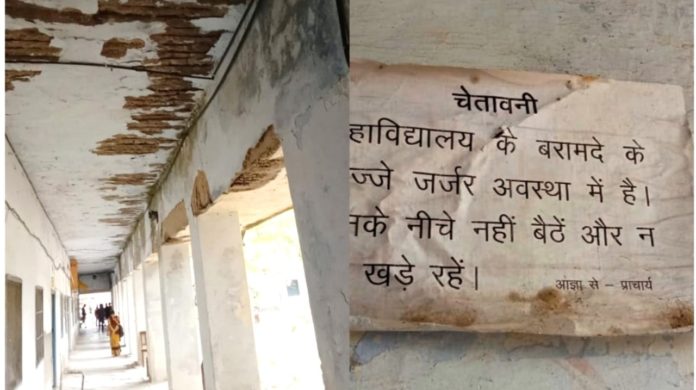 चेतावनी
हाविद्यालय के बरामदे के
ज्जे जर्जर अवस्था में है।
नके नीचे नहीं बैठें और न
खड़े रहें।
आज्ञा से – प्राचार्य